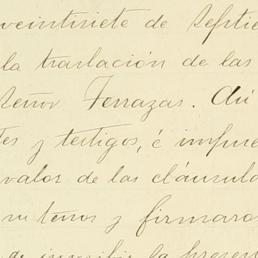 veintisiete de Septie
la traslación de las
Señor Terrazas. Así
tes y testigos, é impue
valor de las cláusula
su tenor y firmaron
de inscribir la presen